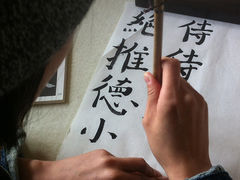 侍侍
絶推德小